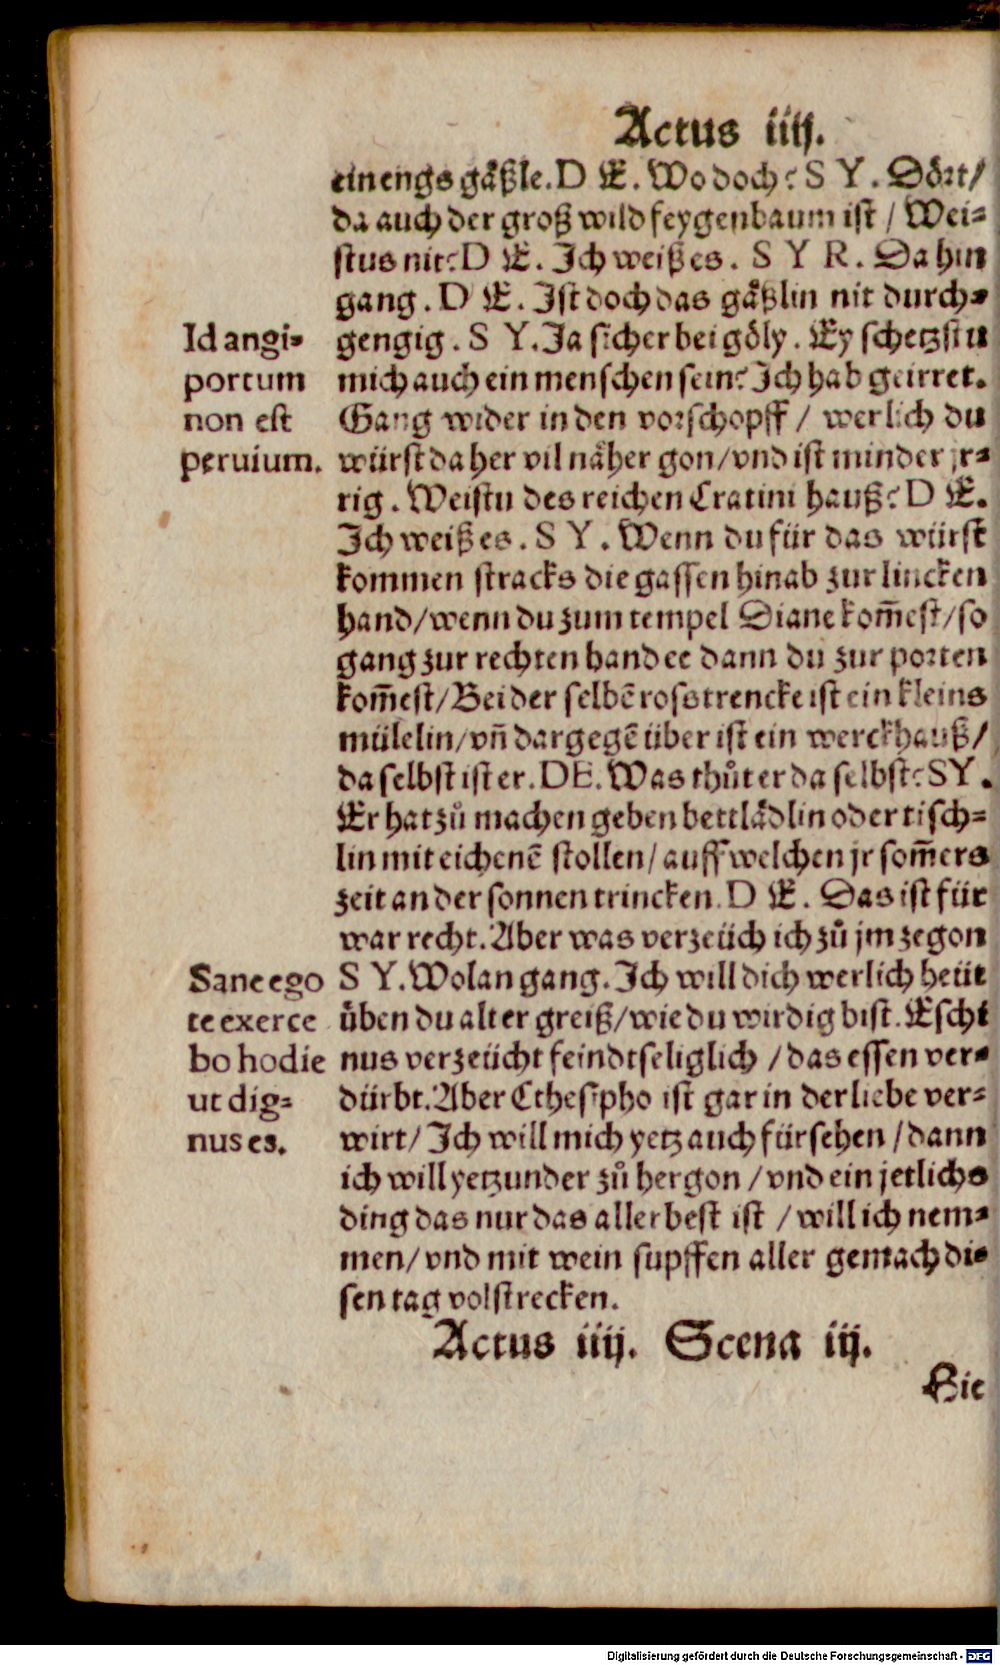 Actus iiij.
ein engs gäßle. D E. Wo doch? S Y. Dört/
da auch der groß wild feygenbaum ist / Wei-
stus nit? D E. Ich weiß es. S Y R. Da hin
gang. D E. Ist doch das gäßlin nit durch-
gengig. S Y. Ja sicher bei göly. Ey schetzstu
mich auch ein menschen sein? Ich hab geirret.
Gang wider in den vorschopff / werlich du
würst da her vil näher gon/vnd ist minder jr-
rig. Weistu des reichen Cratini hauß? D E.
Ich weiß es. S Y. Wenn du für das würst
kommen stracks die gassen hinab zur lincken
hand/wenn du zum tempel Diane kom̃est/so
gang zur rechten hand ee dann du zur porten
kom̃est/Bei der selbẽ rosstrencke ist ein kleins
mülelin/vñ dargegẽ über ist ein werckhauß/
da selbst ist er. DE. Was thůt er da selbst? SY.
Er hat zů machen geben bettlädlin oder tisch-
lin mit eichenẽ stollen/auff welchen jr som̃ers
zeit an der sonnen trincken. D E. Das ist für
war recht. Aber was verzeüch ich zů jm zegon
S Y. Wolan gang. Ich will dich werlich heüt
üben du alter greiß/wie du wirdig bist. Eschi
nus verzeücht feindtseliglich / das essen ver-
dürbt. Aber Cthesipho ist gar in der liebe ver-
wirt/ Ich will mich yetz auch fürsehen / dann
ich will yetzunder zů her gon / vnd ein jetlichs
ding das nur das aller best ist / will ich nem-
men/vnd mit wein supffen aller gemach di-
sen tag volstrecken.
Id angi-
portum
non est
peruium.
Sane ego
te exerce
bo hodie
ut dig-
nus es.
Actus iiij. Scena iij.
Hie
Digitalisierung gefördert durch die Deutsche Forschungsgemeinschaft - DFG